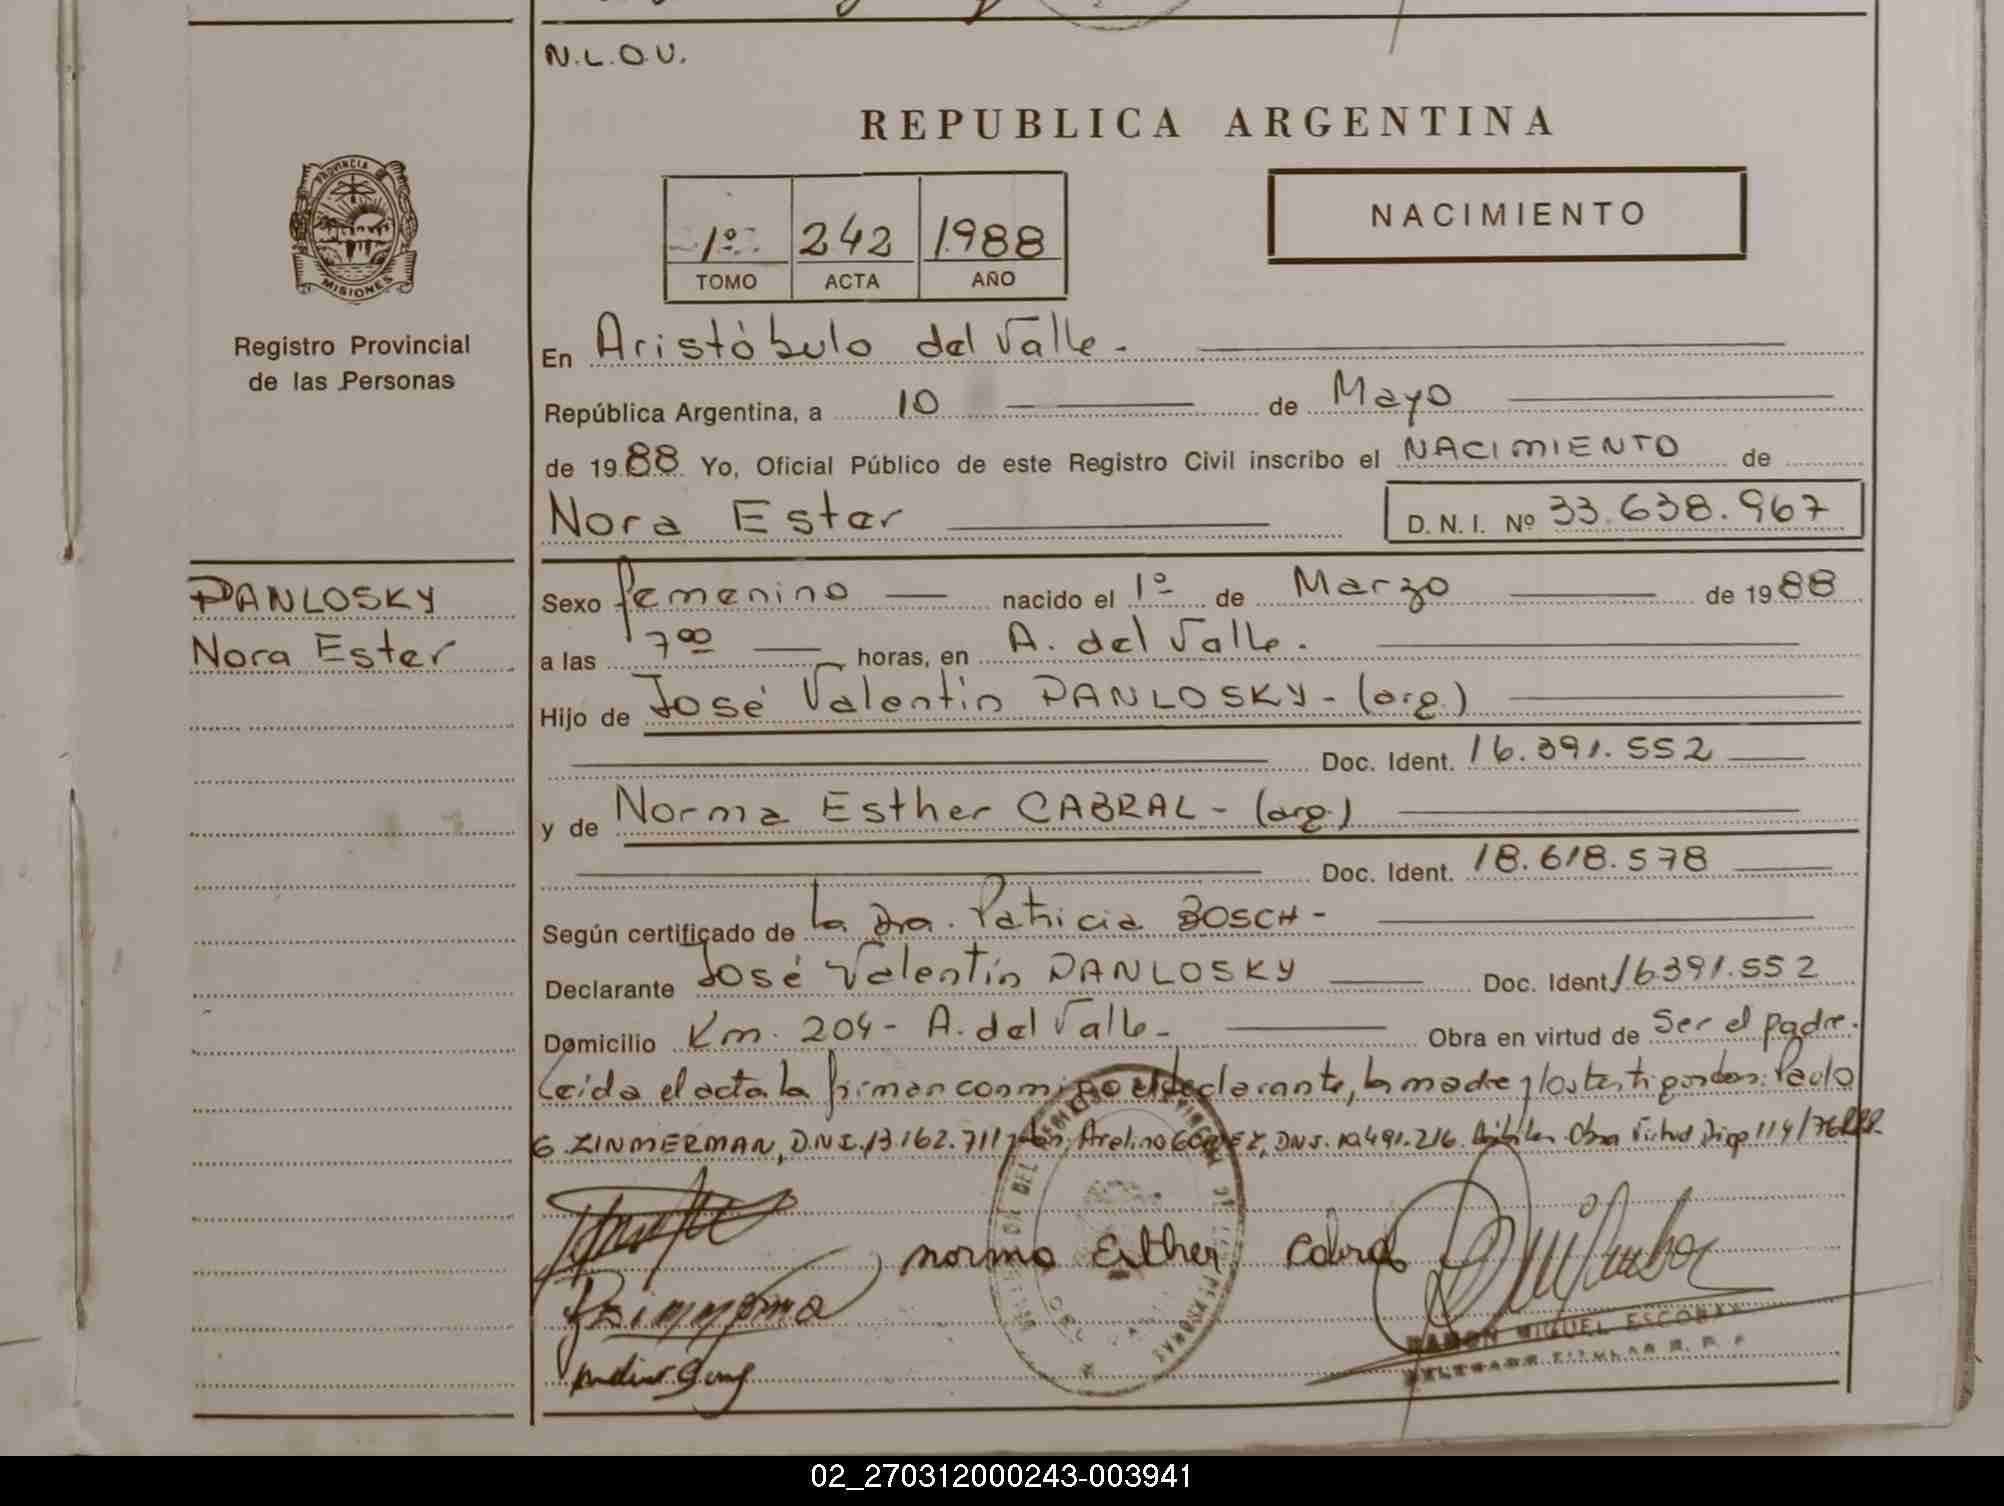 N.L.O.V.
REPUBLICA ARGENTINA
NACIMIENTO
1º 242 1988
TOMO ACTA AÑO
PROVINCIA DE
MISIONES
Registro Provincial
de las Personas
En Aristóbulo del Valle.
República Argentina, a 10 de Mayo
de 1988 Yo, Oficial Público de este Registro Civil inscribo el NACIMIENTO de
Nora Ester D.N.I. Nº 33.638.967
PANLOSKY
Nora Ester
Sexo femenino nacido el 1º de Marzo de 1988
a las 7⁰⁰ horas, en A. del Valle.
Hijo de José Valentín PANLOSKY - (arg.)
Doc. Ident. 16.391.552
y de Norma Esther CABRAL - (arg.)
Doc. Ident. 18.618.578
Según certificado de la Dra. Patricia BOSCH -
Declarante José Valentín PANLOSKY Doc. Ident. 16391.552
Domicilio Km. 204 - A. del Valle - Obra en virtud de Ser el padre.
Leida el acta la firman conmigo el declarante, la madre y los testigos don: Paulo
G. ZINMERMAN, D.N.I. 13.162.711 y don Avelino GOMEZ, DNI. 10.491.216. Obra Virtud Disp 114/76
norma Esther Cabral
RAMON MIGUEL ESCOBAR
DELEGADO TITULAR R. P. P.
02_270312000243-003941